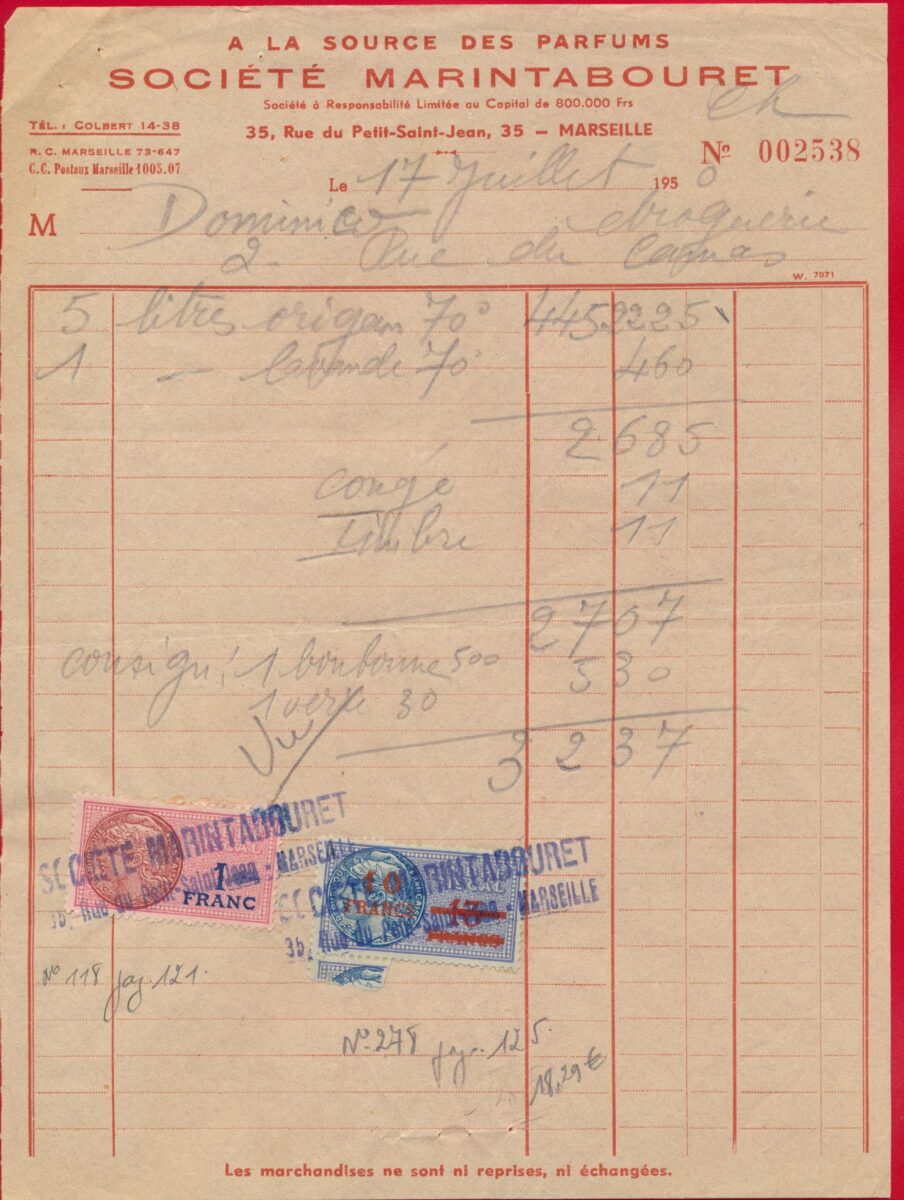 A LA SOURCE DES PARFUMS
SOCIÉTÉ MARINTABOURET
Société à Responsabilité Limitée au Capital de 800.000 Frs
TÉL. : COLBERT 14-38
35, Rue du Petit-Saint-Jean, 35 — MARSEILLE
R. C. MARSEILLE 73-647
C.C. Postaux Marseille 1005.07
Nº 002538
Le 17 Juillet 1950
M Dominici droguerie
2 Rue du Camas
W. 7971
5 litres origan 70° 445 2225
1 — lavande 70° 460
2685
congé 11
Timbre 11
2707
consign! 1 bonbonne 500 530
1 verre 30
Vu
3237
SOCIÉTÉ MARINTABOURET
35, Rue du Petit-Saint-Jean - MARSEILLE
1
FRANC
SOCIÉTÉ MARINTABOURET
35, Rue du Petit-Saint-Jean - MARSEILLE
10
FRANCS
No 118 pag. 121.
No. 278 page. 125.
18,29€
Les marchandises ne sont ni reprises, ni échangées.